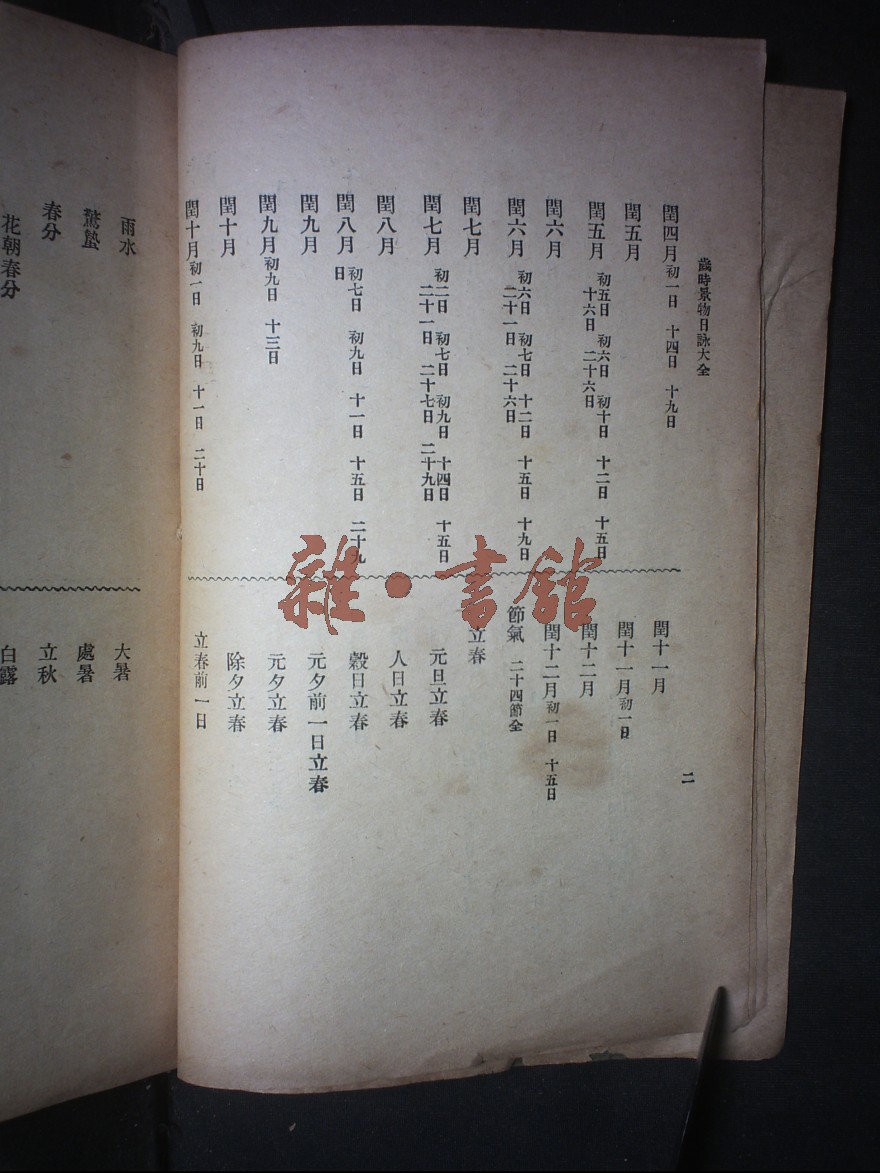 歲時景物日詠大全
二
閏四月初一日 十四日 十九日
閏五月
閏五月 初五日 初六日 初十日 十二日 十五日
十六日 二十六日
閏六月
閏六月 初六日 初七日 十二日 十五日 十九日
二十一日 二十六日
閏七月
閏七月 初二日 初七日 初九日 十四日 十五日
二十一日 二十七日 二十九日
閏八月
閏八月 初七日 初九日 十一日 十五日 二十九
日
閏九月
閏九月初九日 十三日
閏十月
閏十月初一日 初九日 十一日 二十日
閏十一月
閏十一月初一日
閏十二月
閏十二月初一日 十五日
節氣 二十四節全
立春
元旦立春
人日立春
穀日立春
元夕前一日立春
元夕立春
除夕立春
立春前一日
雨水
驚蟄
春分
花朝春分
大暑
處暑
立秋
白露
雜·書館